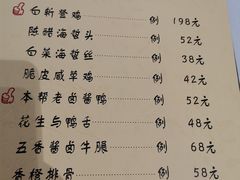 白斩登鸡 例 198元
陈醋海蜇头 例 52元
白菜海蜇丝 例 38元
脆皮咸草鸡 例 42元
本帮老卤酱鸭 例 52元
花生与鸭舌 例 48元
五香酱卤牛腱 例 68元
香橙排骨 例 58元